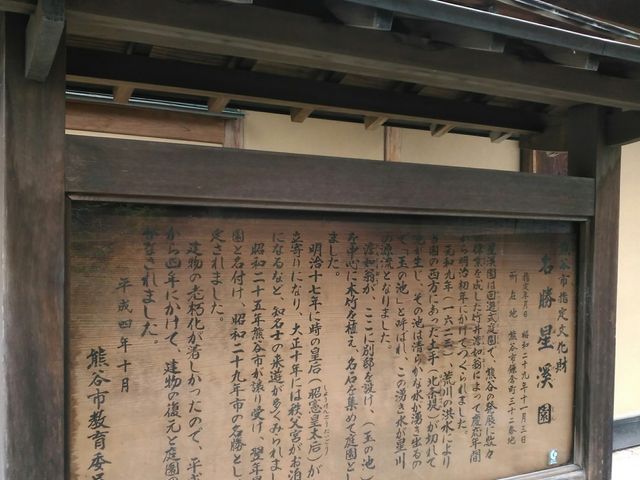 熊谷市指定文化財
名勝 星溪園
指定年月日 昭和二十九年十一月三日
所在地 熊谷市鎌倉町三十二番地
星溪園は回遊式庭園で、熊谷の発展に数々
偉業を成した竹井澹如翁によって慶応年間
から明治初年にかけてつくられました。
元和九年(一六二三)、荒川の洪水により
当園の西方にあった土手(北条堤)が切れて
池が生じ、その池は清らかな水が湧き出るの
で、「玉の池」と呼ばれ、この湧き水が星川
の源流となりました。
澹如翁が、ここに別邸を設け、(玉の池)
を中心に木竹を植え、名石を集めて庭園とし
ました。
明治十七年に時の皇后(昭憲皇太后)が
しょうけんこうたいごう
立寄りになり、大正十年には秩父宮がお泊
になるなど、知名士の来遊が多くみられまし
昭和二十五年熊谷市が譲り受け、翌年
園と名付け、昭和二十九年市の名勝とし
定されました。
建物の老朽化が著しかったので、平
から四年にかけて、建物の復元と庭園の
がなされました。
平成四年十月
熊谷市教育委